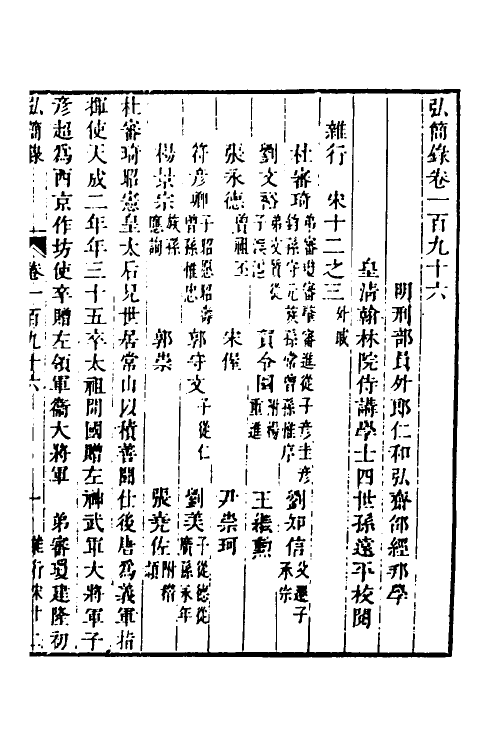 弘簡錄卷一百九十六
明刑部員外郎仁和弘齋邵經邦學
皇清翰林院侍講學士四世孫遠平校閱
雜行 宋十二之三外戚
杜審琦弟審瓊審肇審進從子彥圭彥鈞孫守元葵孫常曾孫惟序 劉知信父遷子承宗
劉文裕子渙弟文質從 賀令圖附楊重進 王繼勳
張永德曾祖丕 宋偓 尹崇珂
符彥卿子昭愿昭壽曾孫惟忠 郭守文子從仁 劉美子從德從廣孫永年
楊景宗族孫應詢 郭崇 張堯佐附稽穎
杜審琦昭憲皇太后兄世居常山以積善聞仕後唐爲義軍指
揮使天成二年年三十五卒太祖開國贈左神武軍大將軍子
彥超爲西京作坊使卒贈左領軍衞大將軍 弟審瓊建隆初
弘簡錄 卷一百九十六 一 雜行宋十二